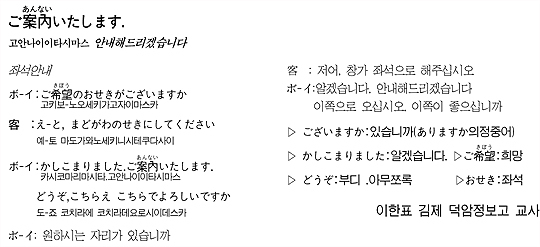 あんない
ご案內いたします.
고안나이이타시마스 안내해드리겠습니다
좌석안내
きぼう
ボーイ:ご希望のおせきがございますか
고키보-노오세키가고자이마스카
客 :えーと, まどがわのせきにしてください
에-토 마도가와노세키니시테쿠다사이
あんない
ボーイ:かしこまりました.ご案內いたします.
카시코마리마시타.고안나이이타시마스
どうぞ,こちらえ こちらでよろしいですか
도-죠 코치라에 코치라데요로시이데스카
ボーイ: 원하시는 자리가 있습니까
客 : 저어, 창가 좌석으로 해주십시오
ボーイ:알겠습니다. 안내해드리겠습니다
이쪽으로 오십시오. 이쪽이 좋으십니까
▷ ございますか:있습니까(ありますか의정중어)
きぼう
▷ かしこまりました:알겠습니다. ▷ご希望:희망
▷ どうぞ:부디 .아무쪼록 ▷おせき:좌석
이한표 김제 덕암정보고 교사